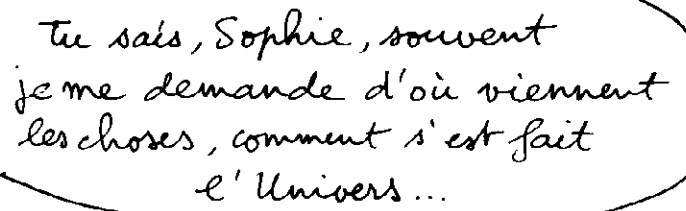 Tu sais, Sophie, souvent
je me demande d'où viennent
les choses, comment s'est fait
l'Univers...